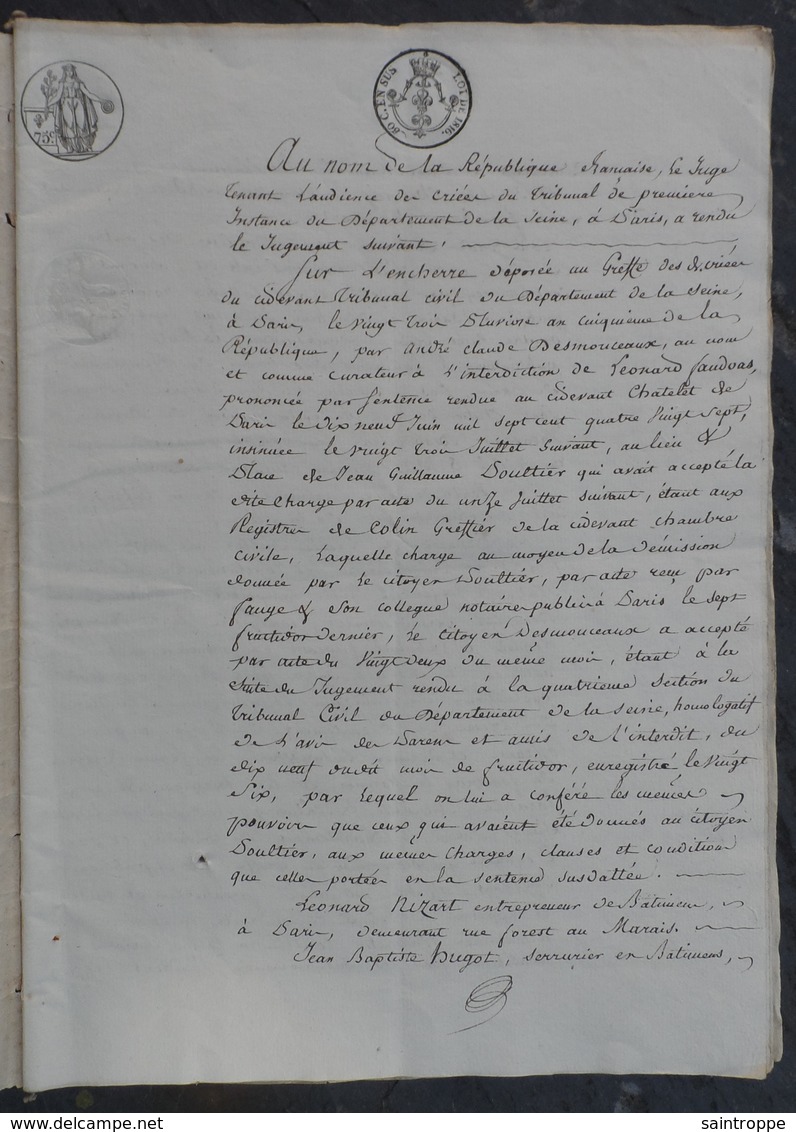 75c
50 C. EN SUS
LOI DE 1816.
Au nom de la République francaise, Le Juge
tenant L'audience des criées du tribunal de premiere
Instance du Département de la Seine, à Paris, a rendu
le Jugement suivant,
Sur L'encherre déposée au Greffe des criées
du cidevant Tribunal civil du Département de la Seine,
à Paris, le vingt trois Pluviose an cinquieme de la
République, par André Claude Desmouceaux, au nom
et comme curateur à L'interdiction de Léonard
prononcée par Sentence rendue au cidevant Chatelet de
Paris le dix neuf Juin mil sept cent quatre vingt sept,
insinuée le vingt trois Juillet suivant, au lieu &
Place de Jean Guillaume Poultier qui avait accepté la
dite Charge par acte du unze Juillet suivant, étant aux
Registres de Colin Greffier de la cidevant chambre
civile, Laquelle charge au moyen de la démission
donnée par Le citoyen Poultier, par acte reçu par
& son collegue notaires publics à Paris le sept
fructidor dernier, Le Citoyen Desmouceaux a accepté
par acte du Vingt deux du même mois, étant à la
suite du Jugement rendu à la quatrieme section du
Tribunal Civil du Département de la Seine, homologatif
de L'avis des Parens et amis de l'interdit, du
dix neuf dudit mois de fructidor, enregistré le vingt
Six, par Lequel on lui a conféré les mêmes
pouvoirs que ceux qui avaient été donnés au citoyen
Poultier, aux mêmes charges, clauses et conditions
que celles portées en la sentence susdattée.
Léonard Nizart entrepreneur de Batimens,
à Paris, demeurant rue forest au Marais.
Jean Baptiste Hugot, serrurier en Batimens,
saintroppe